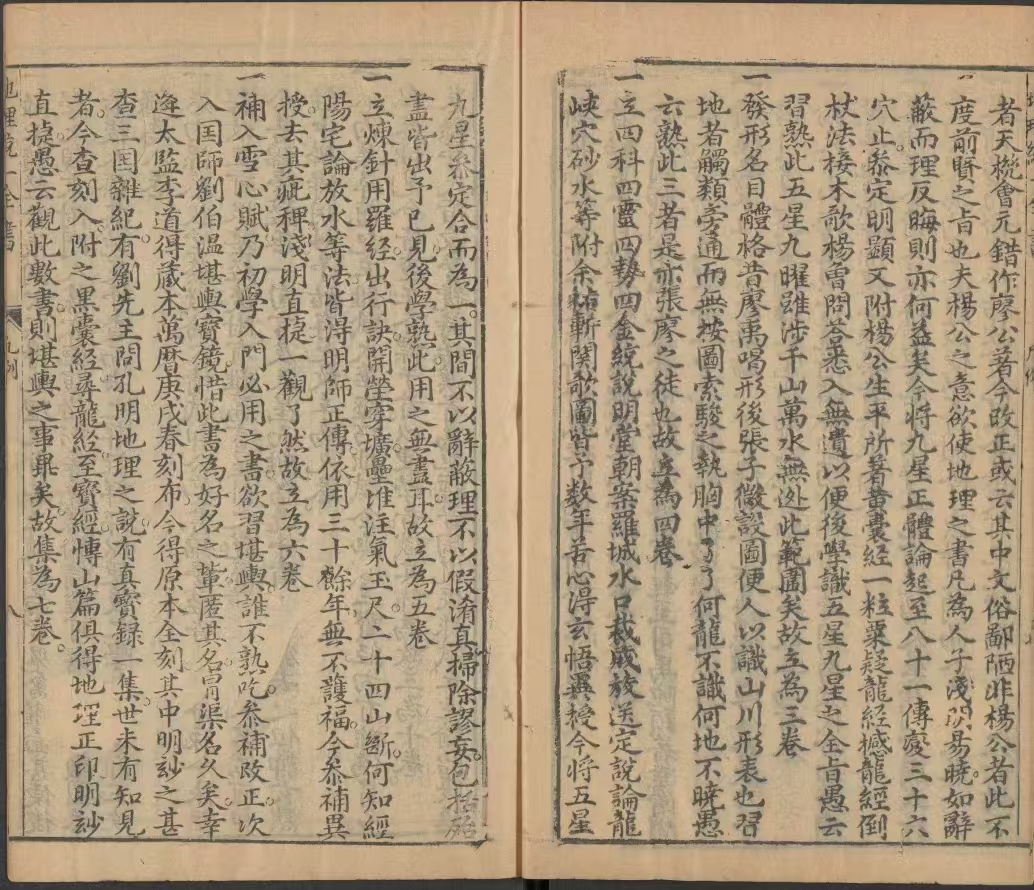 者天機會元錯作廖公著今改正或云其中文俗鄙陋非楊公者此不
一度前賢之旨也夫楊公之意欲使地理之書凡為人子淺明易曉如辭
蔽而理反晦則亦何益矣今將九星正體論起至八十一傳變三十六
穴止叅定明顯又附楊公生平所著黃囊經一粒粟疑龍經撼龍經倒
杖法接木歌楊曾問荅悉入無遺以便後學識五星九星之全旨愚云
習熟此五星九曜雖涉千山萬水無処此範圍矣故立為三卷
一發形名目體格昔廖禹喝形後張子微設圖便人以識山川形表也習
地者觸類旁通而無按圖索駿之執胸中了了何龍不識何地不曉愚
云熟此三者是亦張廖之徒也故立為四卷
一立四科四靈四勢四金統說明堂朝案羅城水口裁成放送定說論龍
峽穴砂水等附余祐斬関歌圖皆予数年苦心淂玄悟異授今將五星
九星叅定合而為一其間不以辭蔽理不以假淆真掃除謬妄包括殆
盡皆出予已見後學熟此用之無盡耳故立為五卷
一立煉針用羅經出行訣開塋穿壙壘堆注氣玉尺二十四山斷何知經
陽宅論放水等法皆淂明師正傳依用三十餘年無不護福今叅補異
授去其疵稗淺明直捷一觀了然故立為六卷
一補入雪心賦乃初學入門必用之書欲習堪輿誰不熟吃叅補改正次
入囯師劉伯温堪輿寶鏡惜此書為好名之軰匿其名冐渠名久矣幸
逢太監李道得蔵本萬曆庚戌春刻布今得原本全刻其中明玅之甚
查三囯雜紀有劉先主問孔明地理之說有真寶録一集世未有知見
者今查刻入附之黒囊經尋龍經至寶經愽山篇俱得地理正印明玅
直捷愚云觀此數書則堪輿之事畢矣故集為七卷
地理統一全書
凡例
八